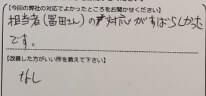 【今回の弊社の対応でよかったところをお聞かせください】
担当者(冨田さん)の対応がすばらしかった
です。
【改善した方がいい所を教えて下さい】
なし